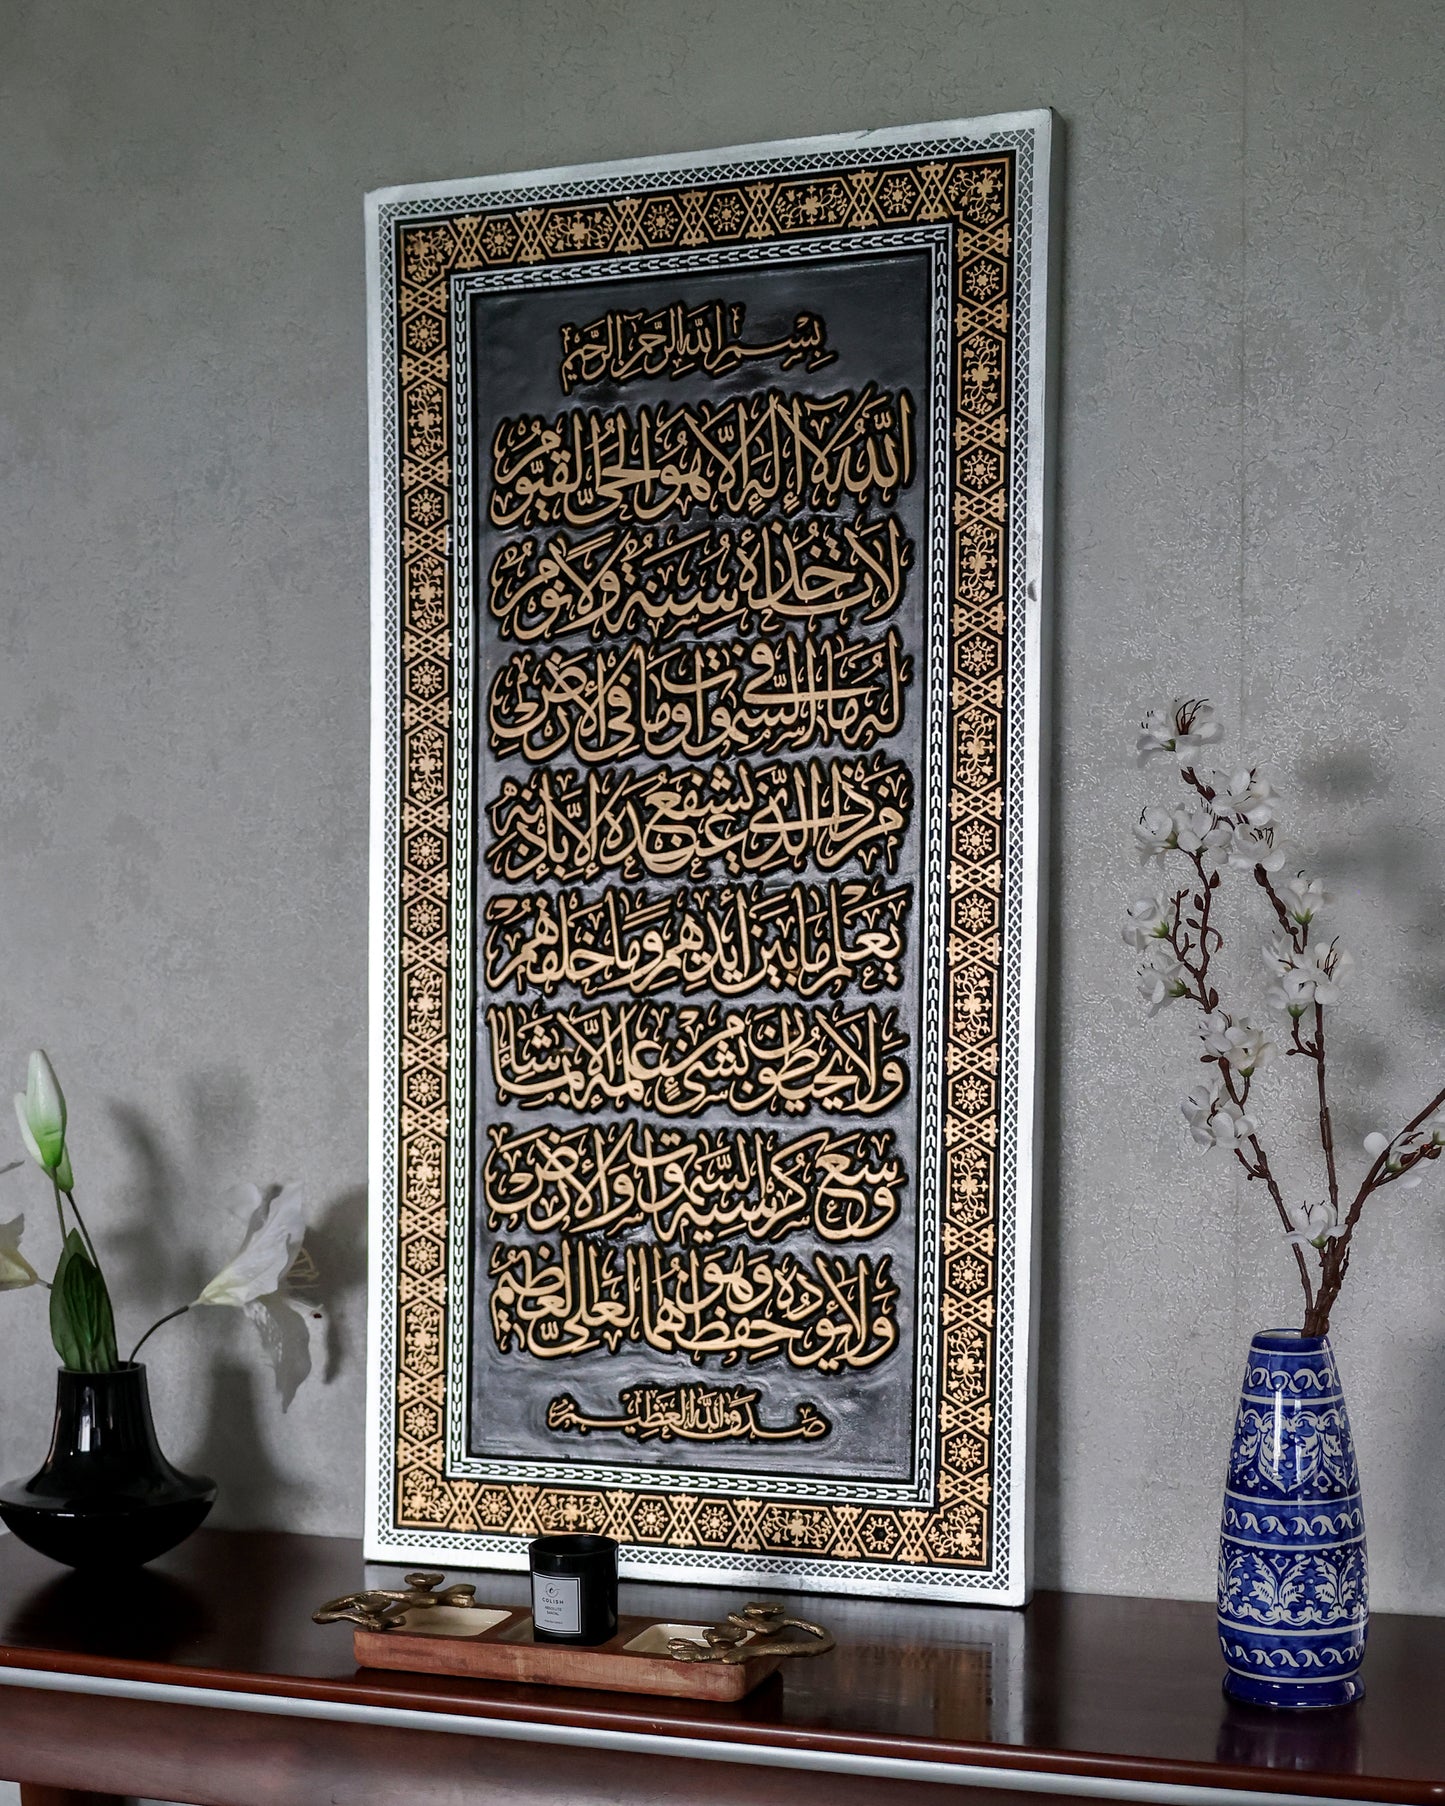 بِسْمِ اللَّهِ الرَّحْمَنِ الرَّحِيمِ
اللَّهُ لَا إِلَهَ إِلَّا هُوَ الْحَيُّ الْقَيُّومُ
لَا تَأْخُذُهُ سِنَةٌ وَلَا نَوْمٌ
لَهُ مَا فِي السَّمَوَاتِ وَمَا فِي الْأَرْضِ
مَنْ ذَا الَّذِي يَشْفَعُ عِنْدَهُ إِلَّا بِإِذْنِهِ
يَعْلَمُ مَا بَيْنَ أَيْدِيهِمْ وَمَا خَلْفَهُمْ
وَلَا يُحِيطُونَ بِشَيْءٍ مِنْ عِلْمِهِ إِلَّا بِمَا شَاءَ
وَسِعَ كُرْسِيُّهُ السَّمَوَاتِ وَالْأَرْضَ
وَلَا يَئُودُهُ حِفْظُهُمَا وَهُوَ الْعَلِيُّ الْعَظِيمُ
صَدَقَ اللَّهُ الْعَظِيمُ
COLISH
ABSOLUTE
SANTAL